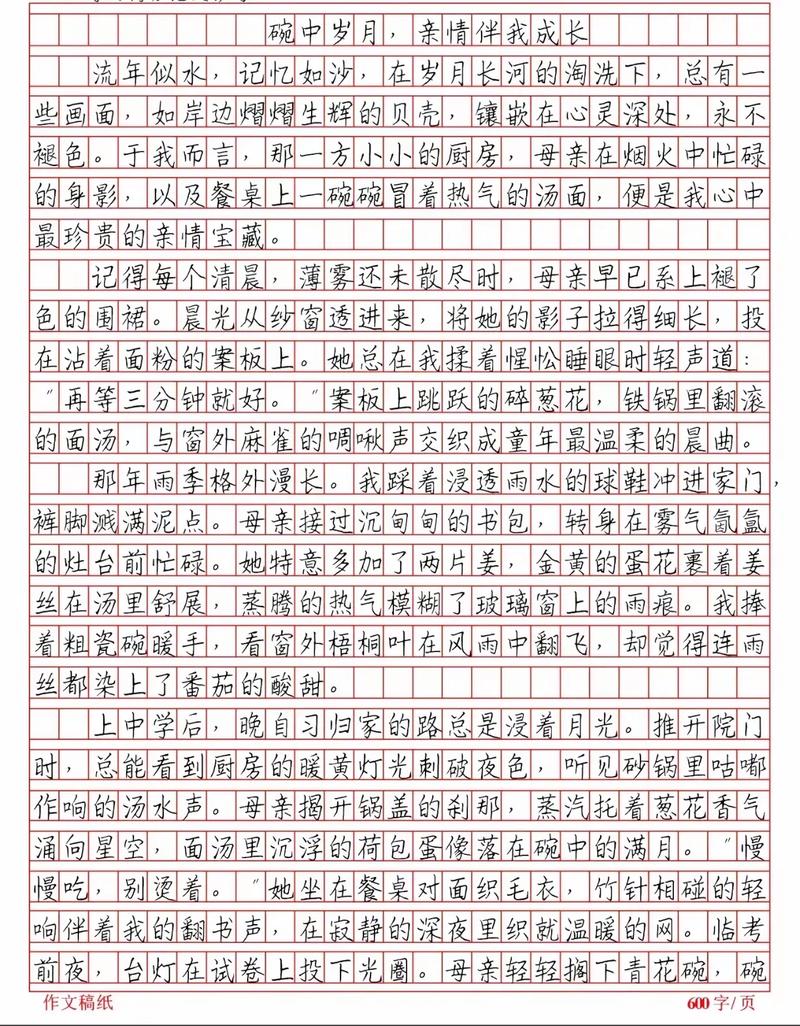 碗中岁月，亲情伴我成长
流年似水，记忆如沙，在岁月长河的淘洗下，总有一
些画面，如岸边熠熠生辉的贝壳，镶嵌在心灵深处，永不
褪色。于我而言，那一方小小的厨房，母亲在烟火中忙碌
的身影，以及餐桌上一碗碗冒着热气的汤面，便是我心中
最珍贵的亲情宝藏。
记得每个清晨，薄雾还未散尽时，母亲早已系上褪了
色的围裙。晨光从纱窗透进来，将她的影子拉得细长，投
在沾着面粉的案板上。她总在我揉着惺忪睡眼时轻声道：
"再等三分钟就好。"案板上跳跃的碎葱花，铁锅里翻滚
的面汤，与窗外麻雀的啁啾声交织成童年最温柔的晨曲。
那年雨季格外漫长。我踩着浸透雨水的球鞋冲进家门，
裤脚溅满泥点。母亲接过沉甸甸的书包，转身在雾气氤氲
的灶台前忙碌。她特意多加了两片姜，金黄的蛋花裹着姜
丝在汤里舒展，蒸腾的热气模糊了玻璃窗上的雨痕。我捧
着粗瓷碗暖手，看窗外梧桐叶在风雨中翻飞，却觉得连雨
丝都染上了番茄的酸甜。
上中学后，晚自习归家的路总是浸着月光。推开院门
时，总能看到厨房的暖黄灯光刺破夜色，听见砂锅里咕嘟
作响的汤水声。母亲揭开锅盖的刹那，蒸汽托着葱花香气
涌向星空，面汤里沉浮的荷包蛋像落在碗中的满月。"慢
慢吃，别烫着。"她坐在餐桌对面织毛衣，竹针相碰的轻
响伴着我的翻书声，在寂静的深夜里织就温暖的网。临考
前夜，台灯在试卷上投下光圈。母亲轻轻搁下青花碗，碗
作文稿纸 600字/页